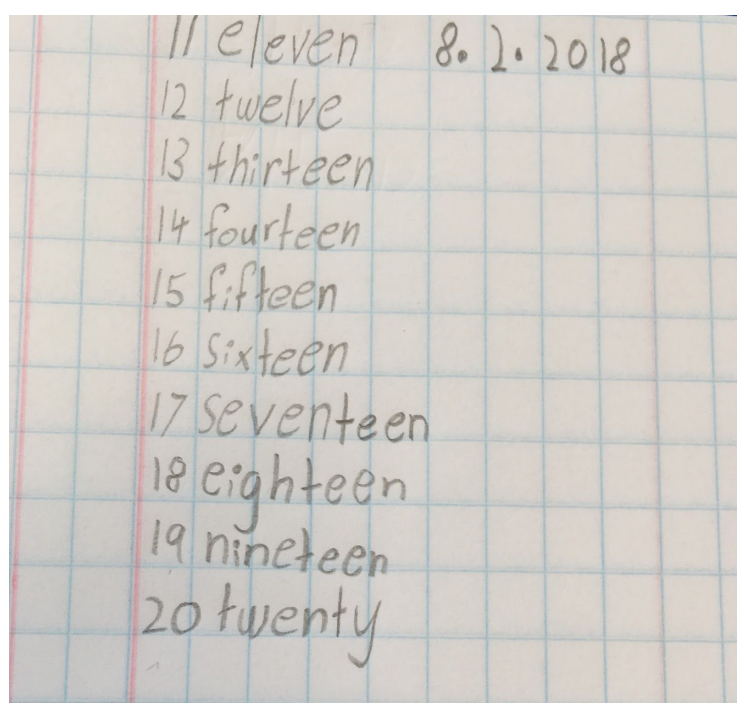 11 eleven 8.2.2018
12 twelve
13 thirteen
14 fourteen
15 fifteen
16 sixteen
17 seventeen
18 eighteen
19 nineteen
20 twenty